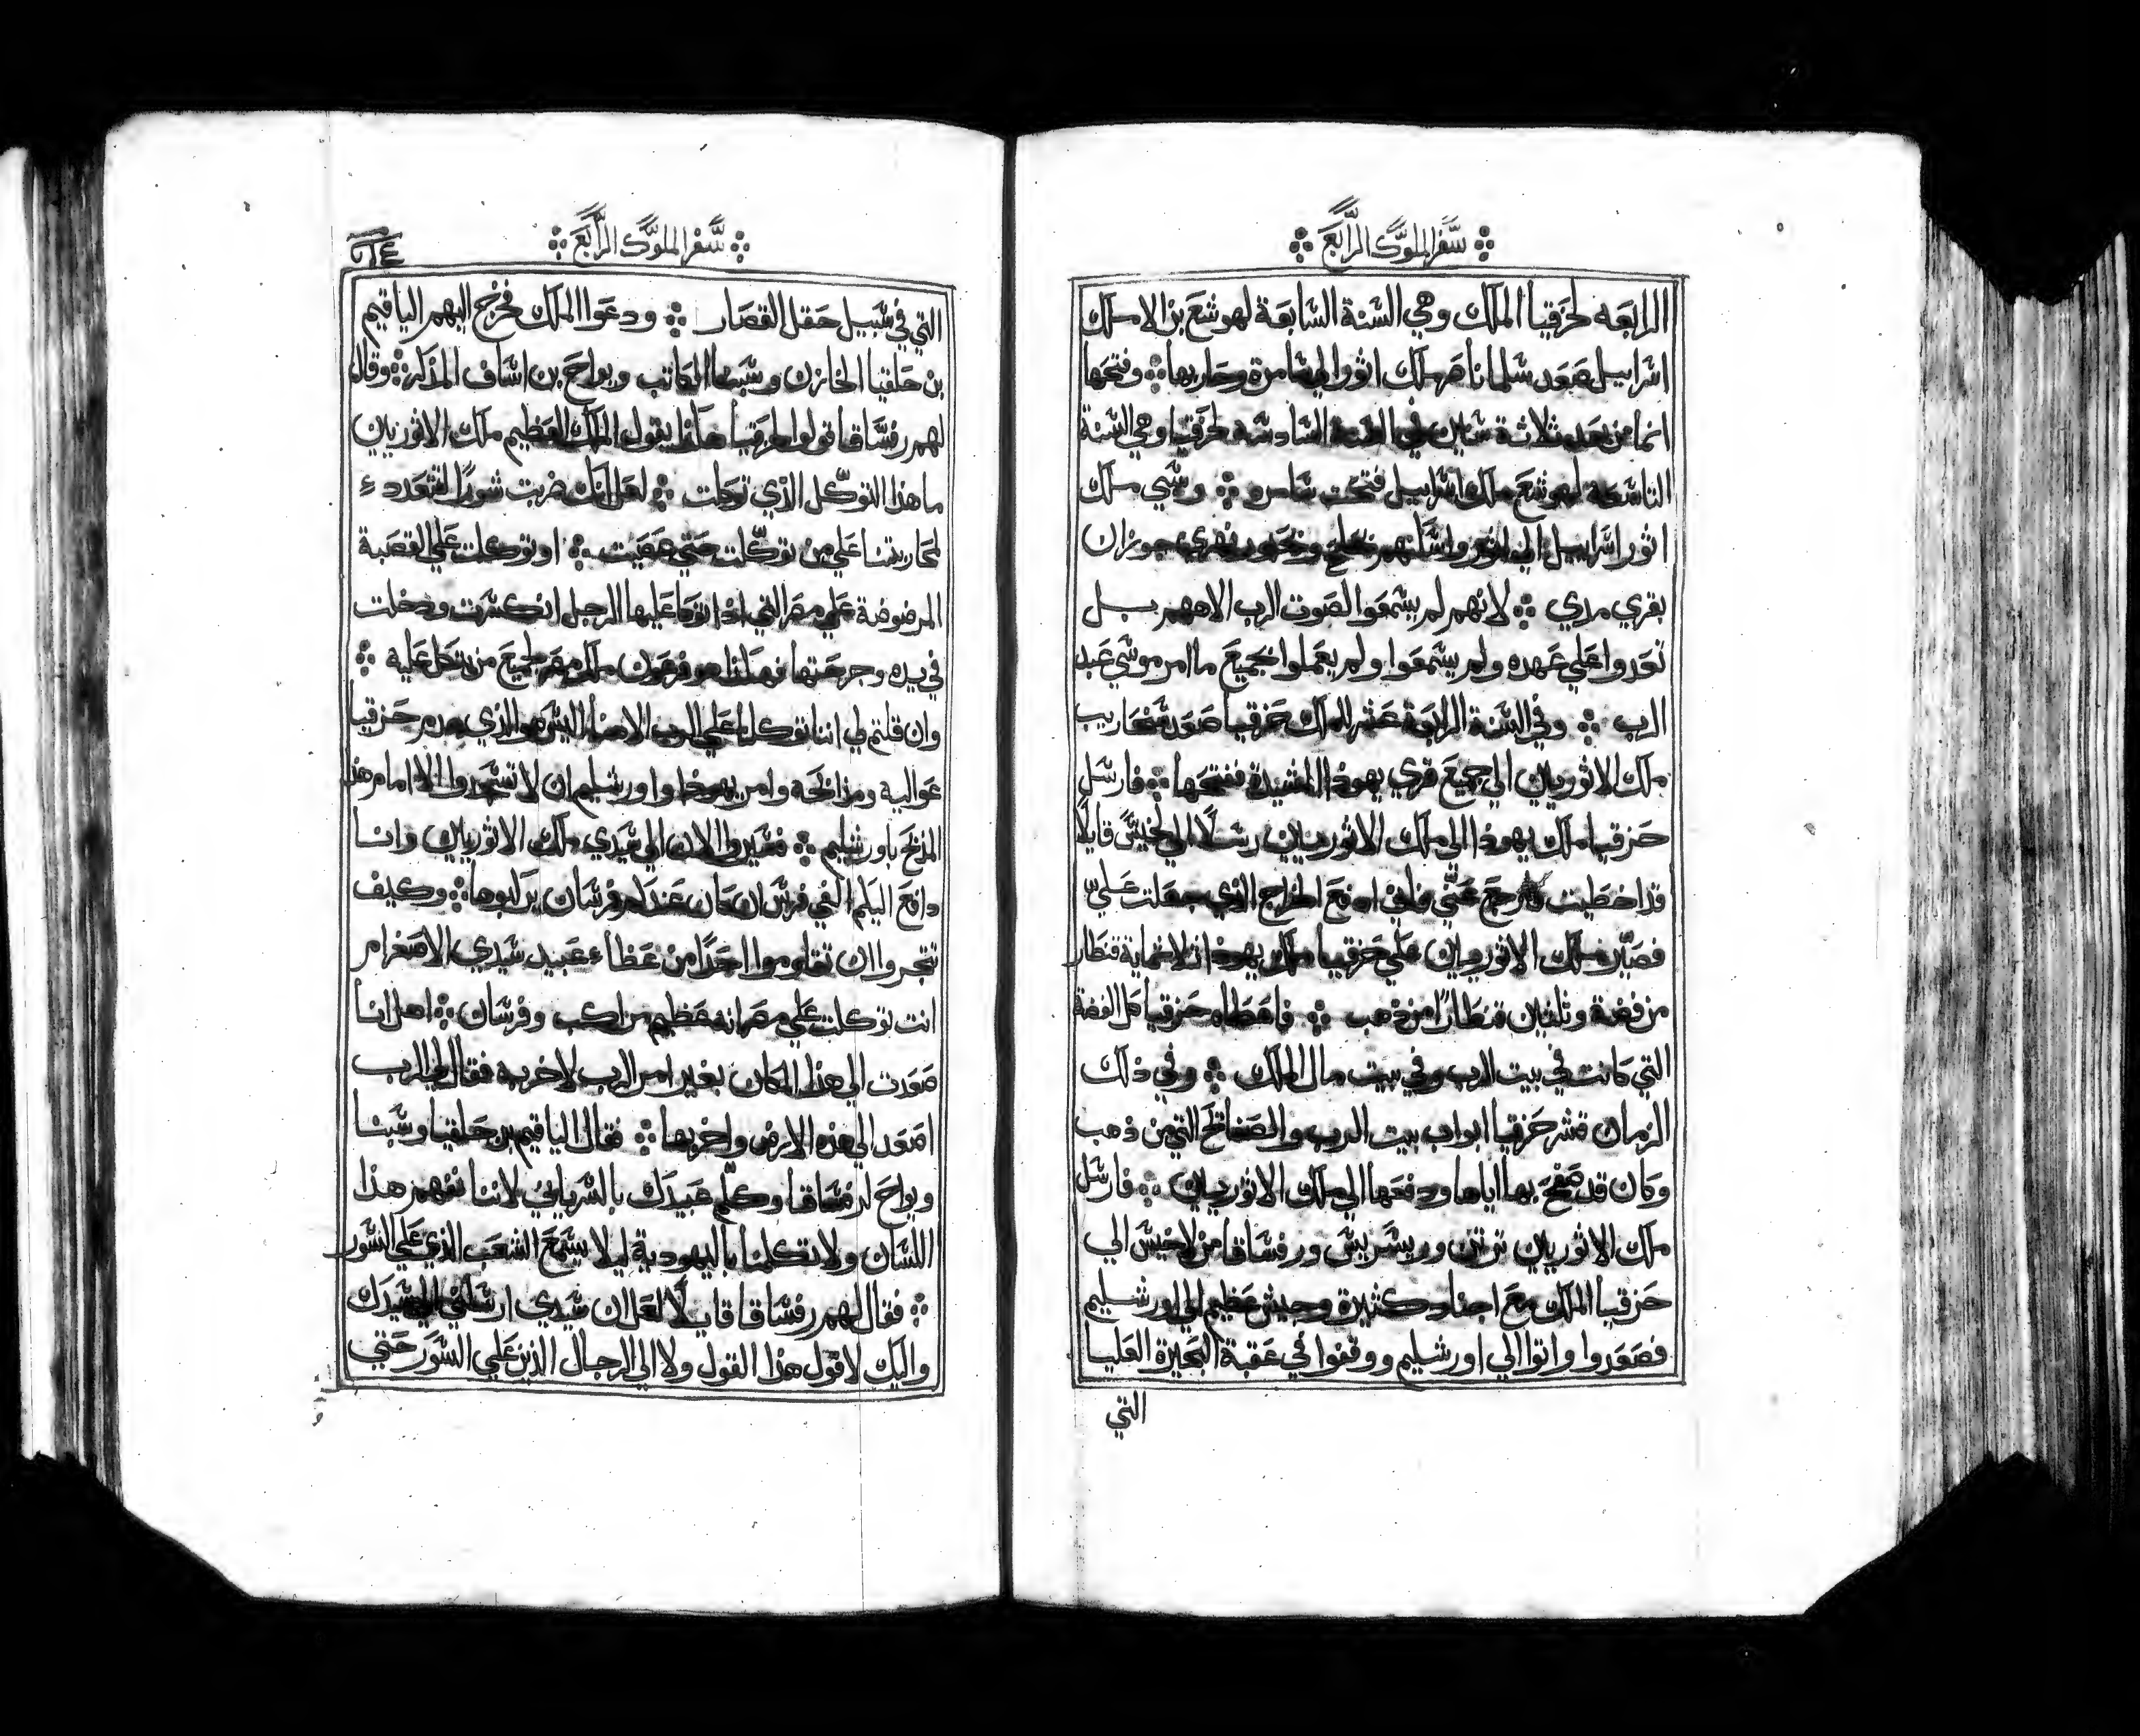 سفر الملوك الرابع
الرابعه لحزقيا الملك وهي السنة السابعة لهوشع بن الا ملك
اسراييل صعد سلمانا صر ملك اثور الي سامرة وحاربها وفتحها
انما من بعد ثلاثة سنين في السنة السادسه لحزقيا وهي السنة
التاسعة لهوشع ملك اسراييل فتحت سامره وسبي ملك
اثور اسراييل الي اثور واسكنهم بحلح وبحبور نهري جوزان
بقري مدي لانهم لم يسمعوا لصوت الرب الاههم بل
تعدوا علي عهده ولم يسمعوا ولم يعملوا بجميع ما امر موسي عبد
الرب وفي السنة الرابعة عشر للملك حزقيا صعد سنحاريب
ملك الاثوريين الي جميع قري يهوذا المشيدة ففتحها فارسل
حزقيا ملك يهوذا الي ملك الاثوريين رسلًا الي لخيس قايلًا
قد اخطيت فارجع عني فاني ادفع الخراج الذي جعلت علي
فصير ملك الاثوريين علي حزقيا ملك يهوذا ثلاثماية قنطار
من فضة وثلثين قنطارًا من ذهب فاعطاه حزقيا كل الفضة
التي كانت في بيت الرب وفي بيت مال الملك وفي ذلك
الزمان قشر حزقيا ابواب بيت الرب والصفائح التي من ذهب
وكان قد صفح بها اياها ودفعها الي ملك الاثوريين فارسل
ملك الاثوريين ترتن وربسريس ورفساقا من لاخيس الي
حزقيا الملك مع اجناد كثيرة وجيش عظيم الي اورشليم
فصعدوا واتوا الي اورشليم ووقفوا في عقبة البحيرة العليا
التي
سفر الملوك الرابع
التي في سبيل حقل القصار ودعوا الملك فخرج اليهم الياقيم
بن حلقيا الخازن وشبنا الكاتب ويواح بن اساف المذكر وقال
لهم رفساقا قولوا لحزقيا هكذا يقول الملك العظيم ملك الاثوريين
ما هذا التوكل الذي توكلت لعل انك ضربت شورًا لتتعدد
لمحاربتنا علي من توكلت حتي عصيت او توكلت علي القصبة
المرضوضة علي مصر التي اذا اتوكا عليها الرجل انكسرت ودخلت
في يده وجرحتها فهكذا هو فرعون ملك مصر لجميع من يتكل عليه
وان قلتم لي اننا توكلنا علي الرب الاهنا اليس هو الذي هدم حزقيا
عواليه ومذابحه وامر يهوذا واورشليم ان لا تسجدوا الا امام هذا
المذبح باورشليم فسيروا الان الي سيدي ملك الاثوريين وانا
دافع اليكم الفي فرس ان كان عندكم فرسان يركبوها وكيف
تتجروا ان تقاوموا احدًا من عظاء عبيد سيدي الاصغر ام
انت توكلت علي مصر انه عظيم مراكب وفرسان اهل انا
صعدت الي هذا المكان بغير امر الرب لاخربه فقال لي الرب
اصعد الي هذه الارض واخربها فقال الياقيم بن حلقيا وشبنا
ويواح لرفساقا وكلم عبيدك بالسرياني لاننا نفهم هذا
اللسان ولا تكلمنا باليهودية ليلا يسمع الشعب الذي علي السور
فقال لهم رفساقا قايلًا لعل ان سيدي ارسلني الي سيدك
واليك لاقول هذا القول ولا الي الرجال الذين علي السور حتي